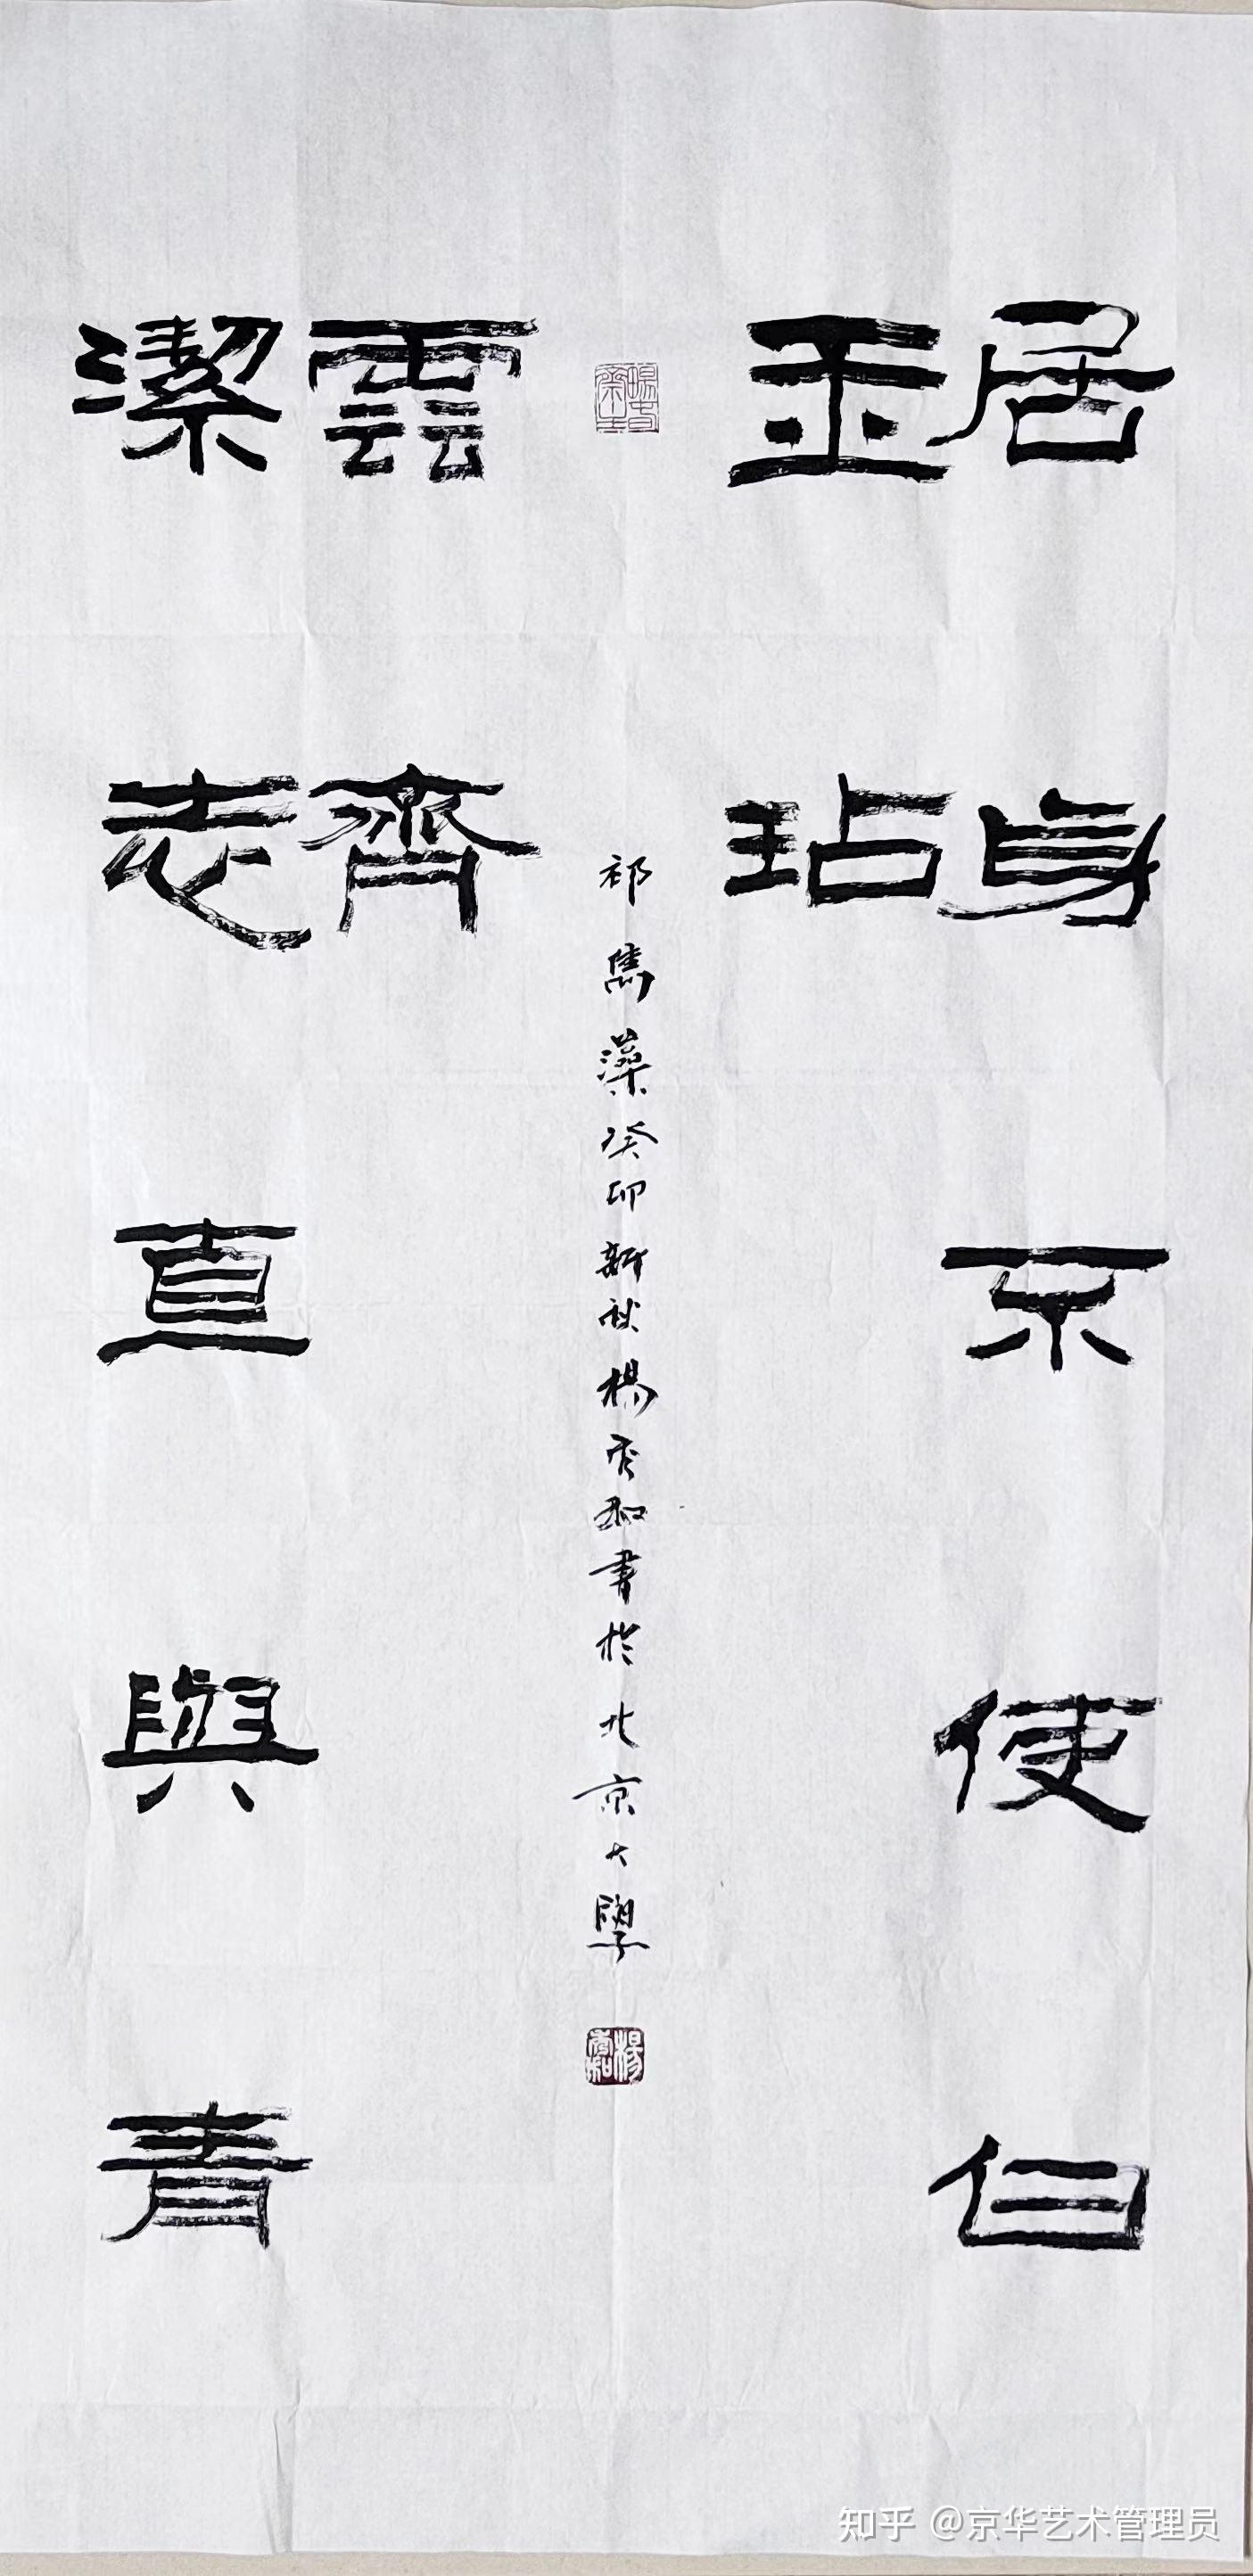 居身不使白
玉玷
祁寯藻癸卯新秋楊秀和書於北京大學
潔志直與青
雲齊
楊秀和
知乎 @京华艺术管理员